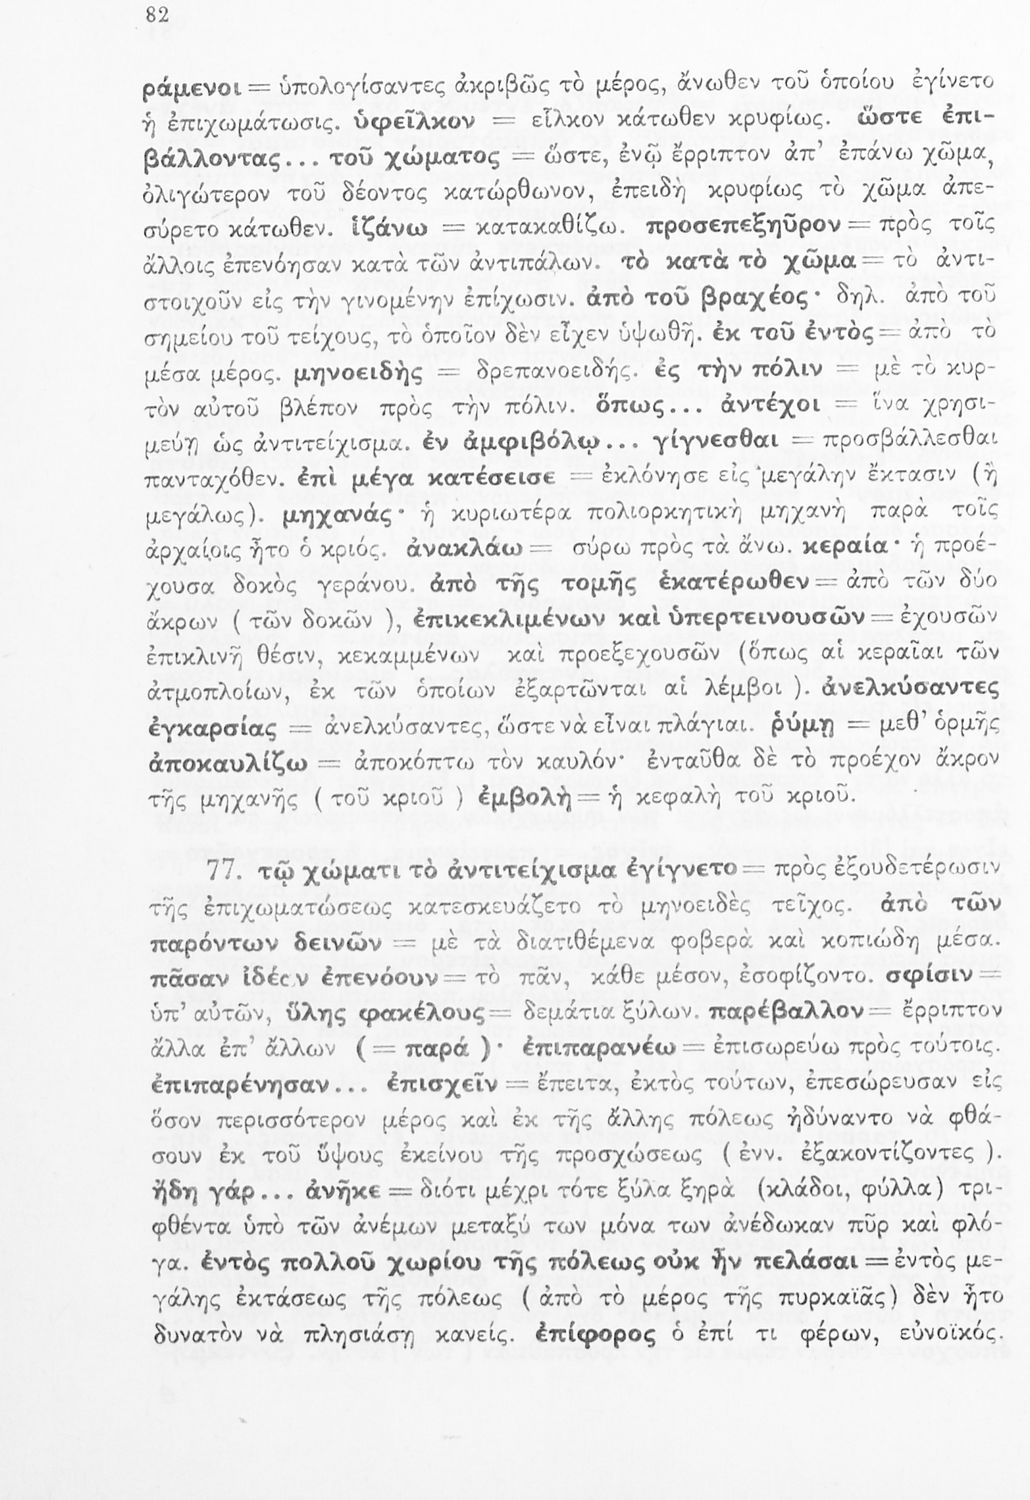 82
ράμενοι = ὑπολογίσαντες ἀκριβῶς τὸ μέρος, ἄνωθεν τοῦ ὁποίου ἐγίνετο
ἡ ἐπιχωμάτωσις. ὑφεῖλκον = εἷλκον κάτωθεν κρυφίως. ὥστε ἐπι-
βάλλοντας... τοῦ χώματος = ὥστε, ἐνῷ ἔρριπτον ἀπ’ ἐπάνω χῶμα,
ὀλιγώτερον τοῦ δέοντος κατώρθωνον, ἐπειδὴ κρυφίως τὸ χῶμα ἀπε-
σύρετο κάτωθεν. ἱζάνω = κατακαθίζω. προσεπεξηῦρον = πρὸς τοῖς
ἄλλοις ἐπενόησαν κατὰ τῶν ἀντιπάλων. τὸ κατὰ τὸ χῶμα = τὸ ἀντι-
στοιχοῦν εἰς τὴν γινομένην ἐπίχωσιν. ἀπὸ τοῦ βραχέος· δηλ. ἀπὸ τοῦ
σημείου τοῦ τείχους, τὸ ὁποῖον δὲν εἶχεν ὑψωθῆ. ἐκ τοῦ ἐντὸς = ἀπὸ τὸ
μέσα μέρος. μηνοειδὴς = δρεπανοειδής. ἐς τὴν πόλιν = μὲ τὸ κυρ-
τὸν αὐτοῦ βλέπον πρὸς τὴν πόλιν. ὅπως... ἀντέχοι = ἵνα χρησι-
μεύῃ ὡς ἀντιτείχισμα. ἐν ἀμφιβόλῳ... γίγνεσθαι = προσβάλλεσθαι
πανταχόθεν. ἐπὶ μέγα κατέσεισε = ἐκλόνησε εἰς μεγάλην ἔκτασιν (ἢ
μεγάλως). μηχανάς· ἡ κυριωτέρα πολιορκητικὴ μηχανὴ παρὰ τοῖς
ἀρχαίοις ἦτο ὁ κριός. ἀνακλάω = σύρω πρὸς τὰ ἄνω. κεραία· ἡ προέ-
χουσα δοκὸς γεράνου. ἀπὸ τῆς τομῆς ἑκατέρωθεν = ἀπὸ τῶν δύο
ἄκρων ( τῶν δοκῶν ), ἐπικεκλιμένων καὶ ὑπερτεινουσῶν = ἐχουσῶν
ἐπικλινῆ θέσιν, κεκαμμένων καὶ προεξεχουσῶν (ὅπως αἱ κεραῖαι τῶν
ἀτμοπλοίων, ἐκ τῶν ὁποίων ἐξαρτῶνται αἱ λέμβοι ). ἀνελκύσαντες
ἐγκαρσίας = ἀνελκύσαντες, ὥστε νὰ εἶναι πλάγιαι. ῥύμῃ = μεθ’ ὁρμῆς
ἀποκαυλίζω = ἀποκόπτω τὸν καυλόν· ἐνταῦθα δὲ τὸ προέχον ἄκρον
τῆς μηχανῆς ( τοῦ κριοῦ ) ἐμβολὴ = ἡ κεφαλὴ τοῦ κριοῦ.
77. τῷ χώματι τὸ ἀντιτείχισμα ἐγίγνετο = πρὸς ἐξουδετέρωσιν
τῆς ἐπιχωματώσεως κατεσκευάζετο τὸ μηνοειδὲς τεῖχος. ἀπὸ τῶν
παρόντων δεινῶν = μὲ τὰ διατιθέμενα φοβερὰ καὶ κοπιώδη μέσα.
πᾶσαν ἰδέαν ἐπενόουν = τὸ πᾶν, κάθε μέσον, ἐσοφίζοντο. σφίσιν =
ὑπ’ αὐτῶν, ὕλης φακέλους = δεμάτια ξύλων. παρέβαλλον = ἔρριπτον
ἄλλα ἐπ’ ἄλλων ( = παρά )· ἐπιπαρανέω = ἐπισωρεύω πρὸς τούτοις.
ἐπιπαρένησαν... ἐπισχεῖν = ἔπειτα, ἐκτὸς τούτων, ἐπεσώρευσαν εἰς
ὅσον περισσότερον μέρος καὶ ἐκ τῆς ἄλλης πόλεως ἠδύναντο νὰ φθά-
σουν ἐκ τοῦ ὕψους ἐκείνου τῆς προσχώσεως ( ἐνν. ἐξακοντίζοντες ).
ἤδη γάρ... ἀνῆκε = διότι μέχρι τότε ξύλα ξηρὰ (κλάδοι, φύλλα) τρι-
φθέντα ὑπὸ τῶν ἀνέμων μεταξύ των μόνα των ἀνέδωκαν πῦρ καὶ φλό-
γα. ἐντὸς πολλοῦ χωρίου τῆς πόλεως οὐκ ἦν πελάσαι = ἐντὸς με-
γάλης ἐκτάσεως τῆς πόλεως ( ἀπὸ τὸ μέρος τῆς πυρκαϊᾶς) δὲν ἦτο
δυνατὸν νὰ πλησιάσῃ κανείς. ἐπίφορος ὁ ἐπί τι φέρων, εὐνοϊκός.